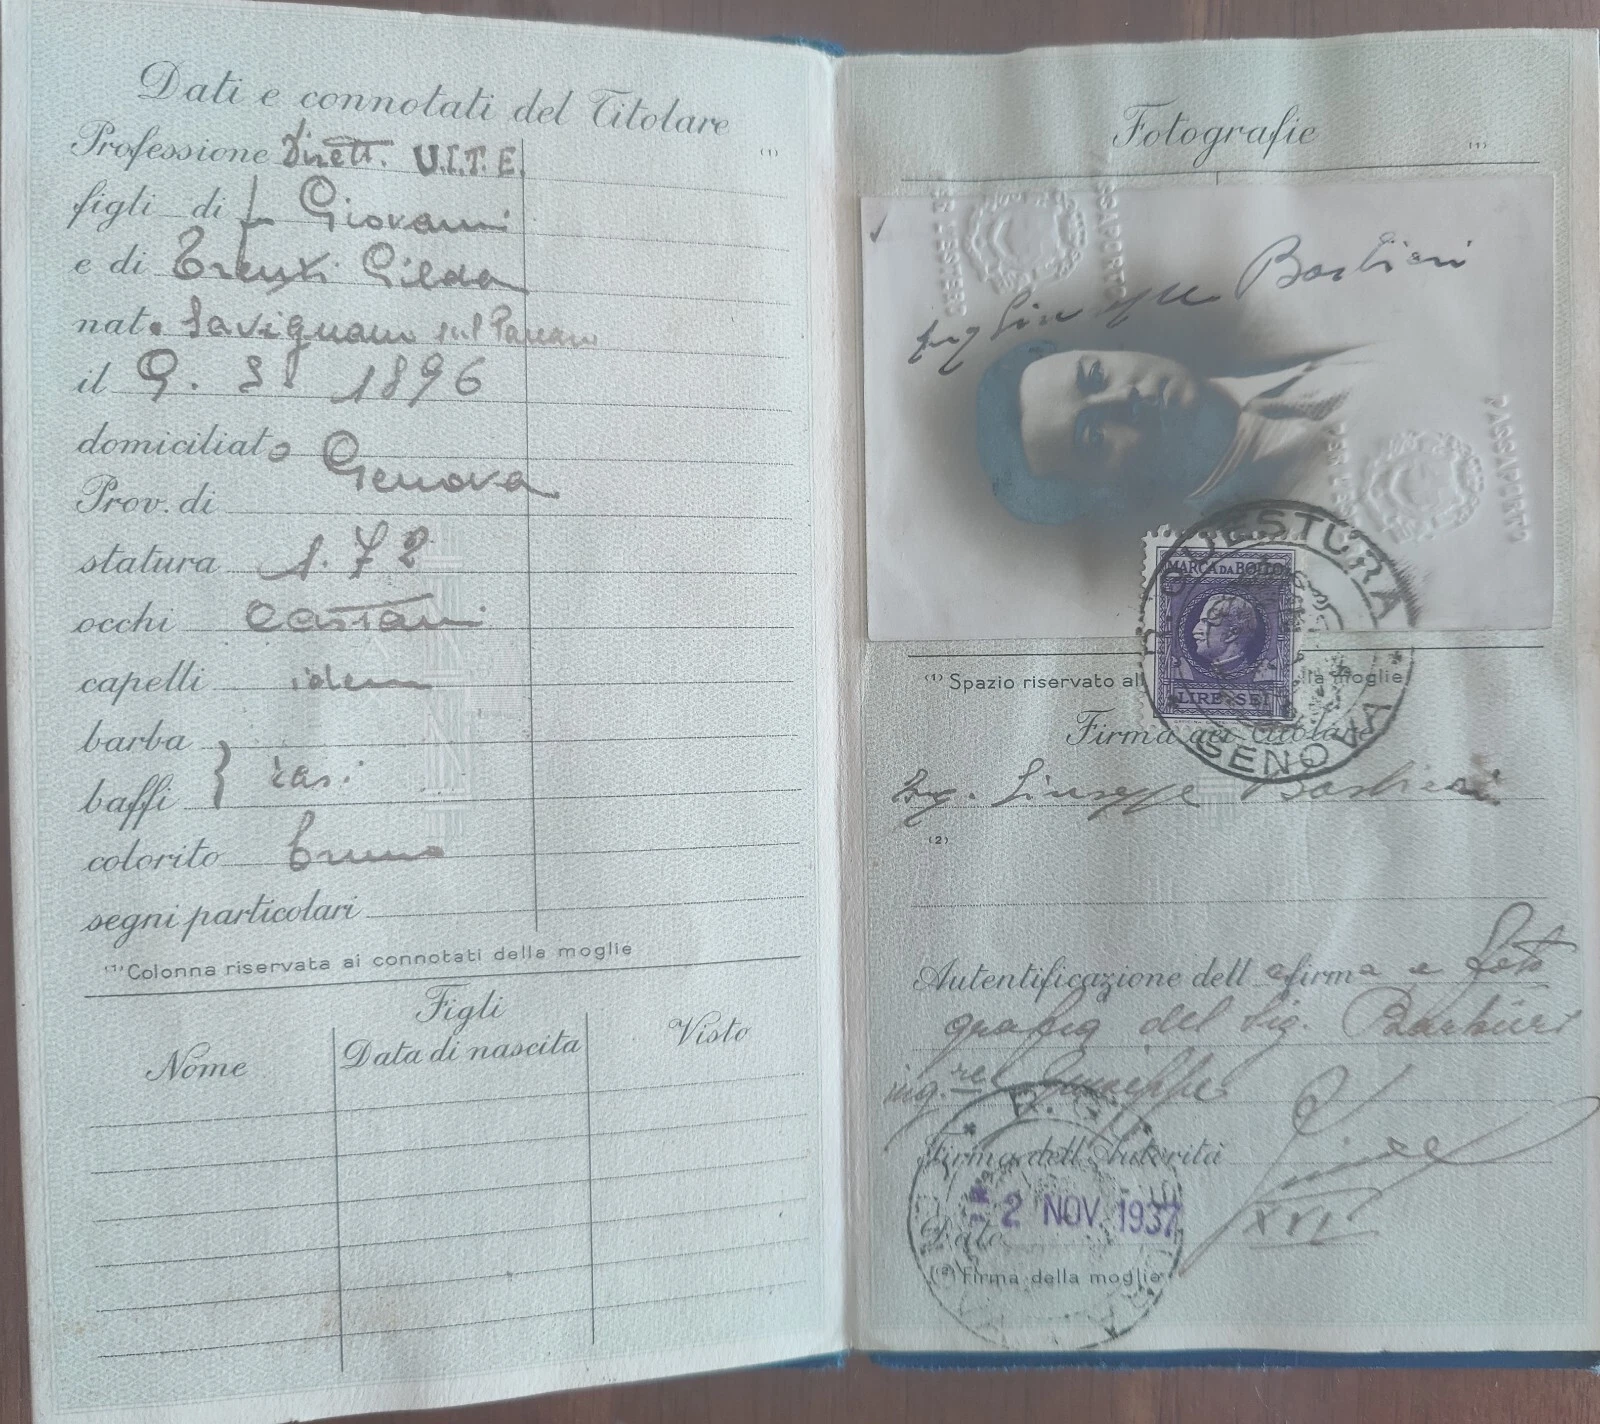 Dati e connotati del Titolare
Professione Dirett. U.I.T.E. (1)
figli di f Giovanni
e di Gilda
nato Savignano sul Panaro
il 9. 3. 1896
domiciliato Genova
Prov. di
statura 1.72
occhi castani
capelli idem
barba
baffi } cas.
colorito bruno
segni particolari
(1) Colonna riservata ai connotati della moglie
Figli
Nome Data di nascita Visto
Fotografie
(1)
PASSAPORTO PER L'ESTERO
Ing Giuseppe Barbieri
PASSAPORTO PER L'ESTERO
R. QUESTURA
MARCA DA BOLLO
LIRE SEI
GENOVA
(1) Spazio riservato al lla moglie
Firma del titolare
Ing. Giuseppe Barbieri
(2)
Autentificazione dell a firma e foto
grafia del Sig. Barbieri
ing.re Giuseppe
Firma dell'Autorità
Data 2 NOV. 1937 XVI
(2) Firma della moglie